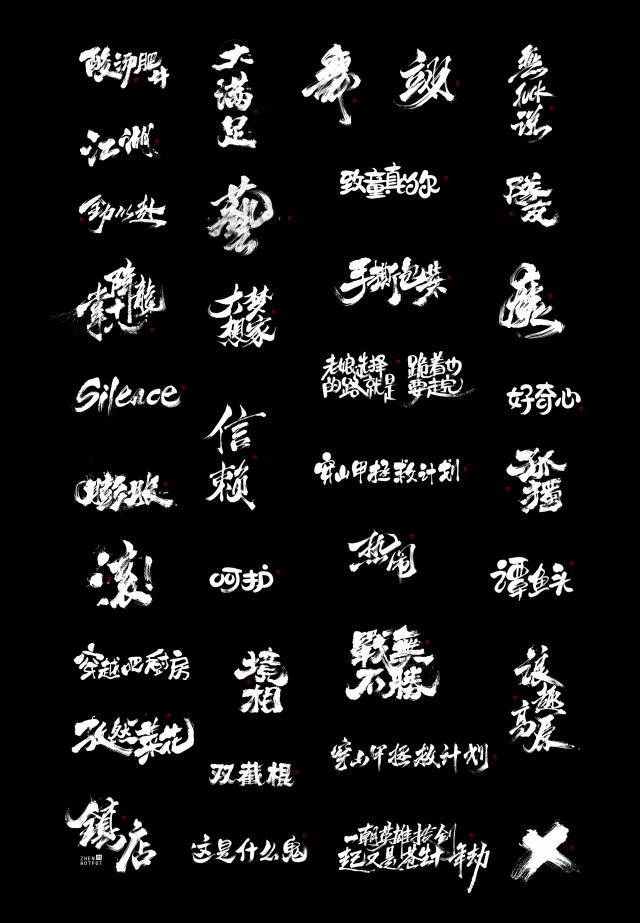 酸汤肥牛
大
满
足
舞
江湖
致童真的你
隊
友
藝
降龍
掌十八
大梦
想家
手撕包装
老娘选择
的路就是
跪着也
要走完
Silence
好奇心
信
赖
穿山甲拯救计划
孤
獨
膨胀
热闹
滚!
呵护
谭鱼头
穿越吧厨房
境
相
戰無
不勝
孜然菜花
双截棍
穿山甲拯救计划
鎮店
ZHEN
HOTPOT
这是什么鬼
一朝英雄拔剑
起又是苍生十年劫